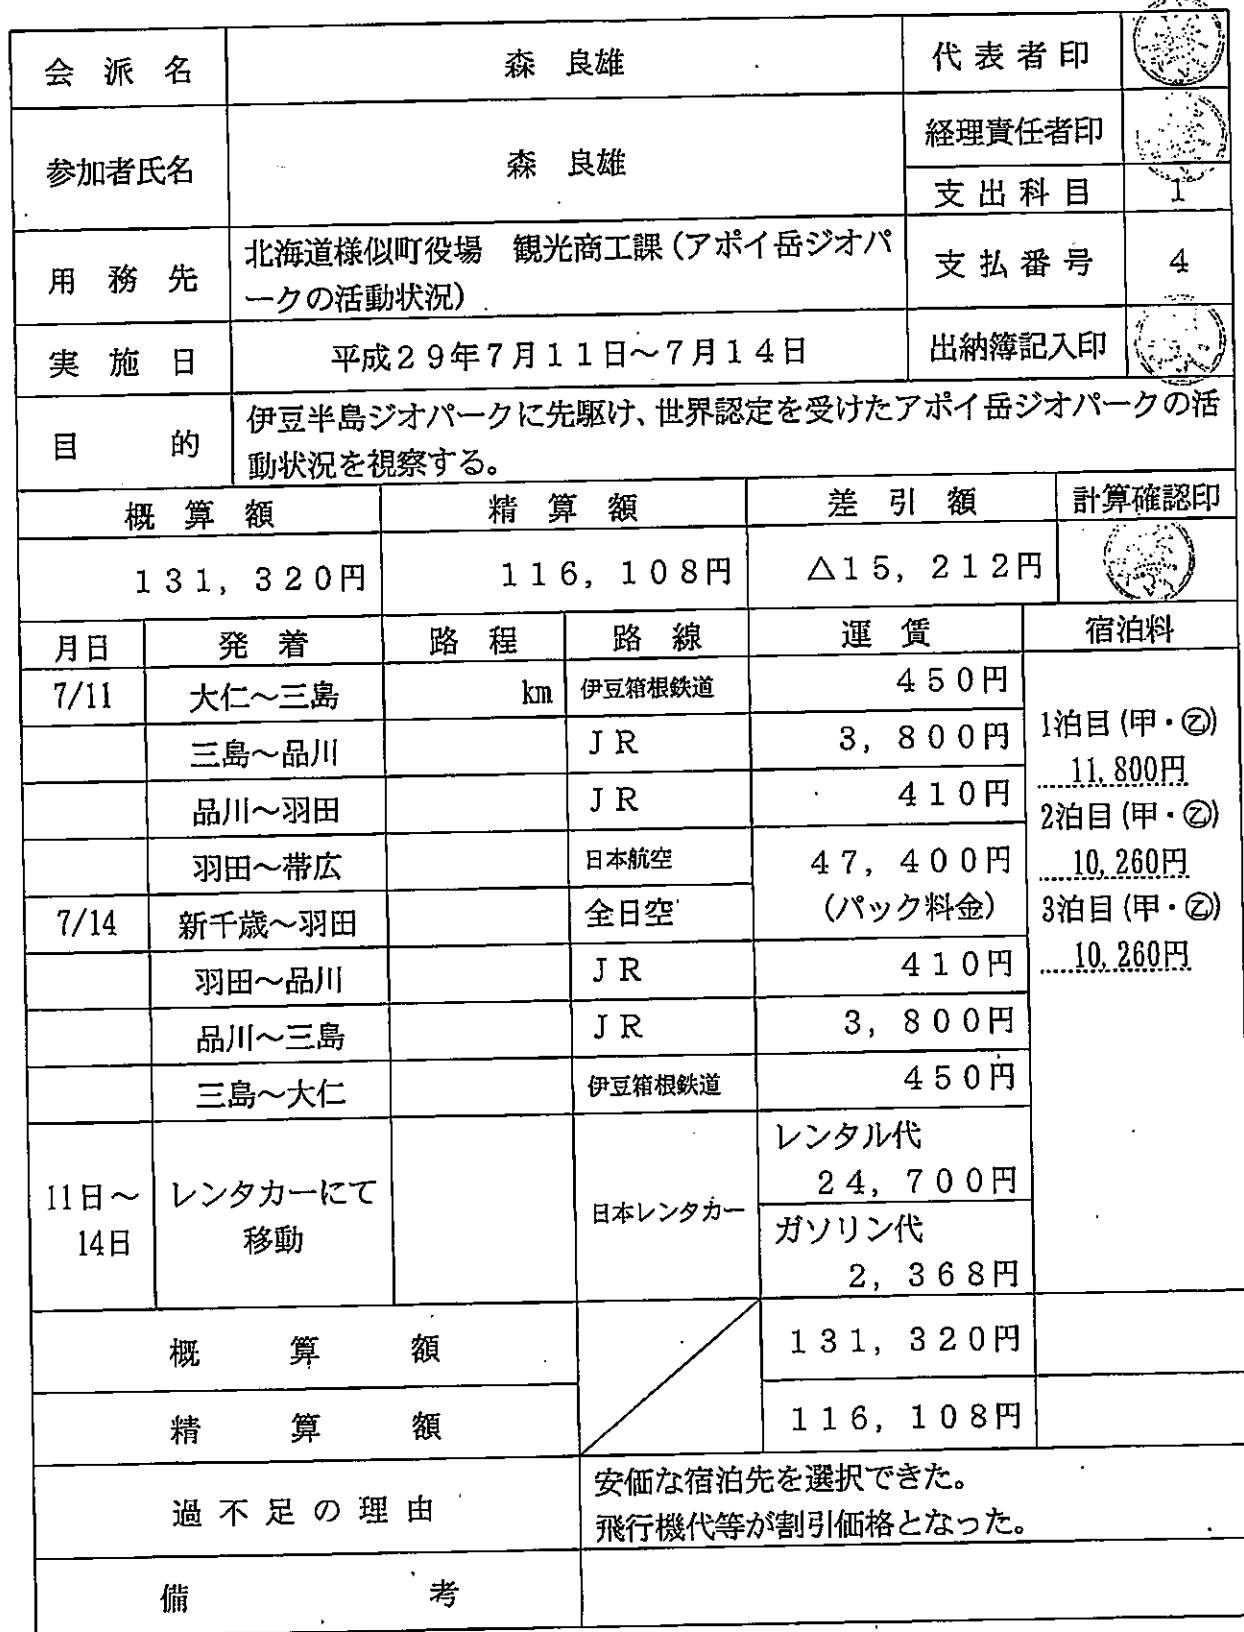 会派名 森 良雄 代表者印
参加者氏名 森 良雄 経理責任者印
支出科目 1
用務先 北海道様似町役場 観光商工課(アポイ岳ジオパ
ークの活動状況) 支払番号 4
実施日 平成29年7月11日~7月14日 出納簿記入印
目的 伊豆半島ジオパークに先駆け、世界認定を受けたアポイ岳ジオパークの活
動状況を視察する。
概算額 精算額 差引額 計算確認印
131,320円 116,108円 △15,212円
月日 発着 路程 路線 運賃 宿泊料
7/11 大仁~三島 km 伊豆箱根鉄道 450円
三島~品川 JR 3,800円 1泊目(甲・㋛)
11,800円
品川~羽田 JR 410円 2泊目(甲・乙)
羽田~帯広 日本航空 47,400円 10,260円
7/14 新千歳~羽田 全日空 (パック料金) 3泊目(甲・乙)
羽田~品川 JR 410円 10,260円
品川~三島 JR 3,800円
三島~大仁 伊豆箱根鉄道 450円
11日~
14日 レンタカーにて
移動 日本レンタカー レンタル代
24,700円
ガソリン代
2,368円
概算額 131,320円
精算額 116,108円
過不足の理由 安価な宿泊先を選択できた。
飛行機代等が割引価格となった。
備考